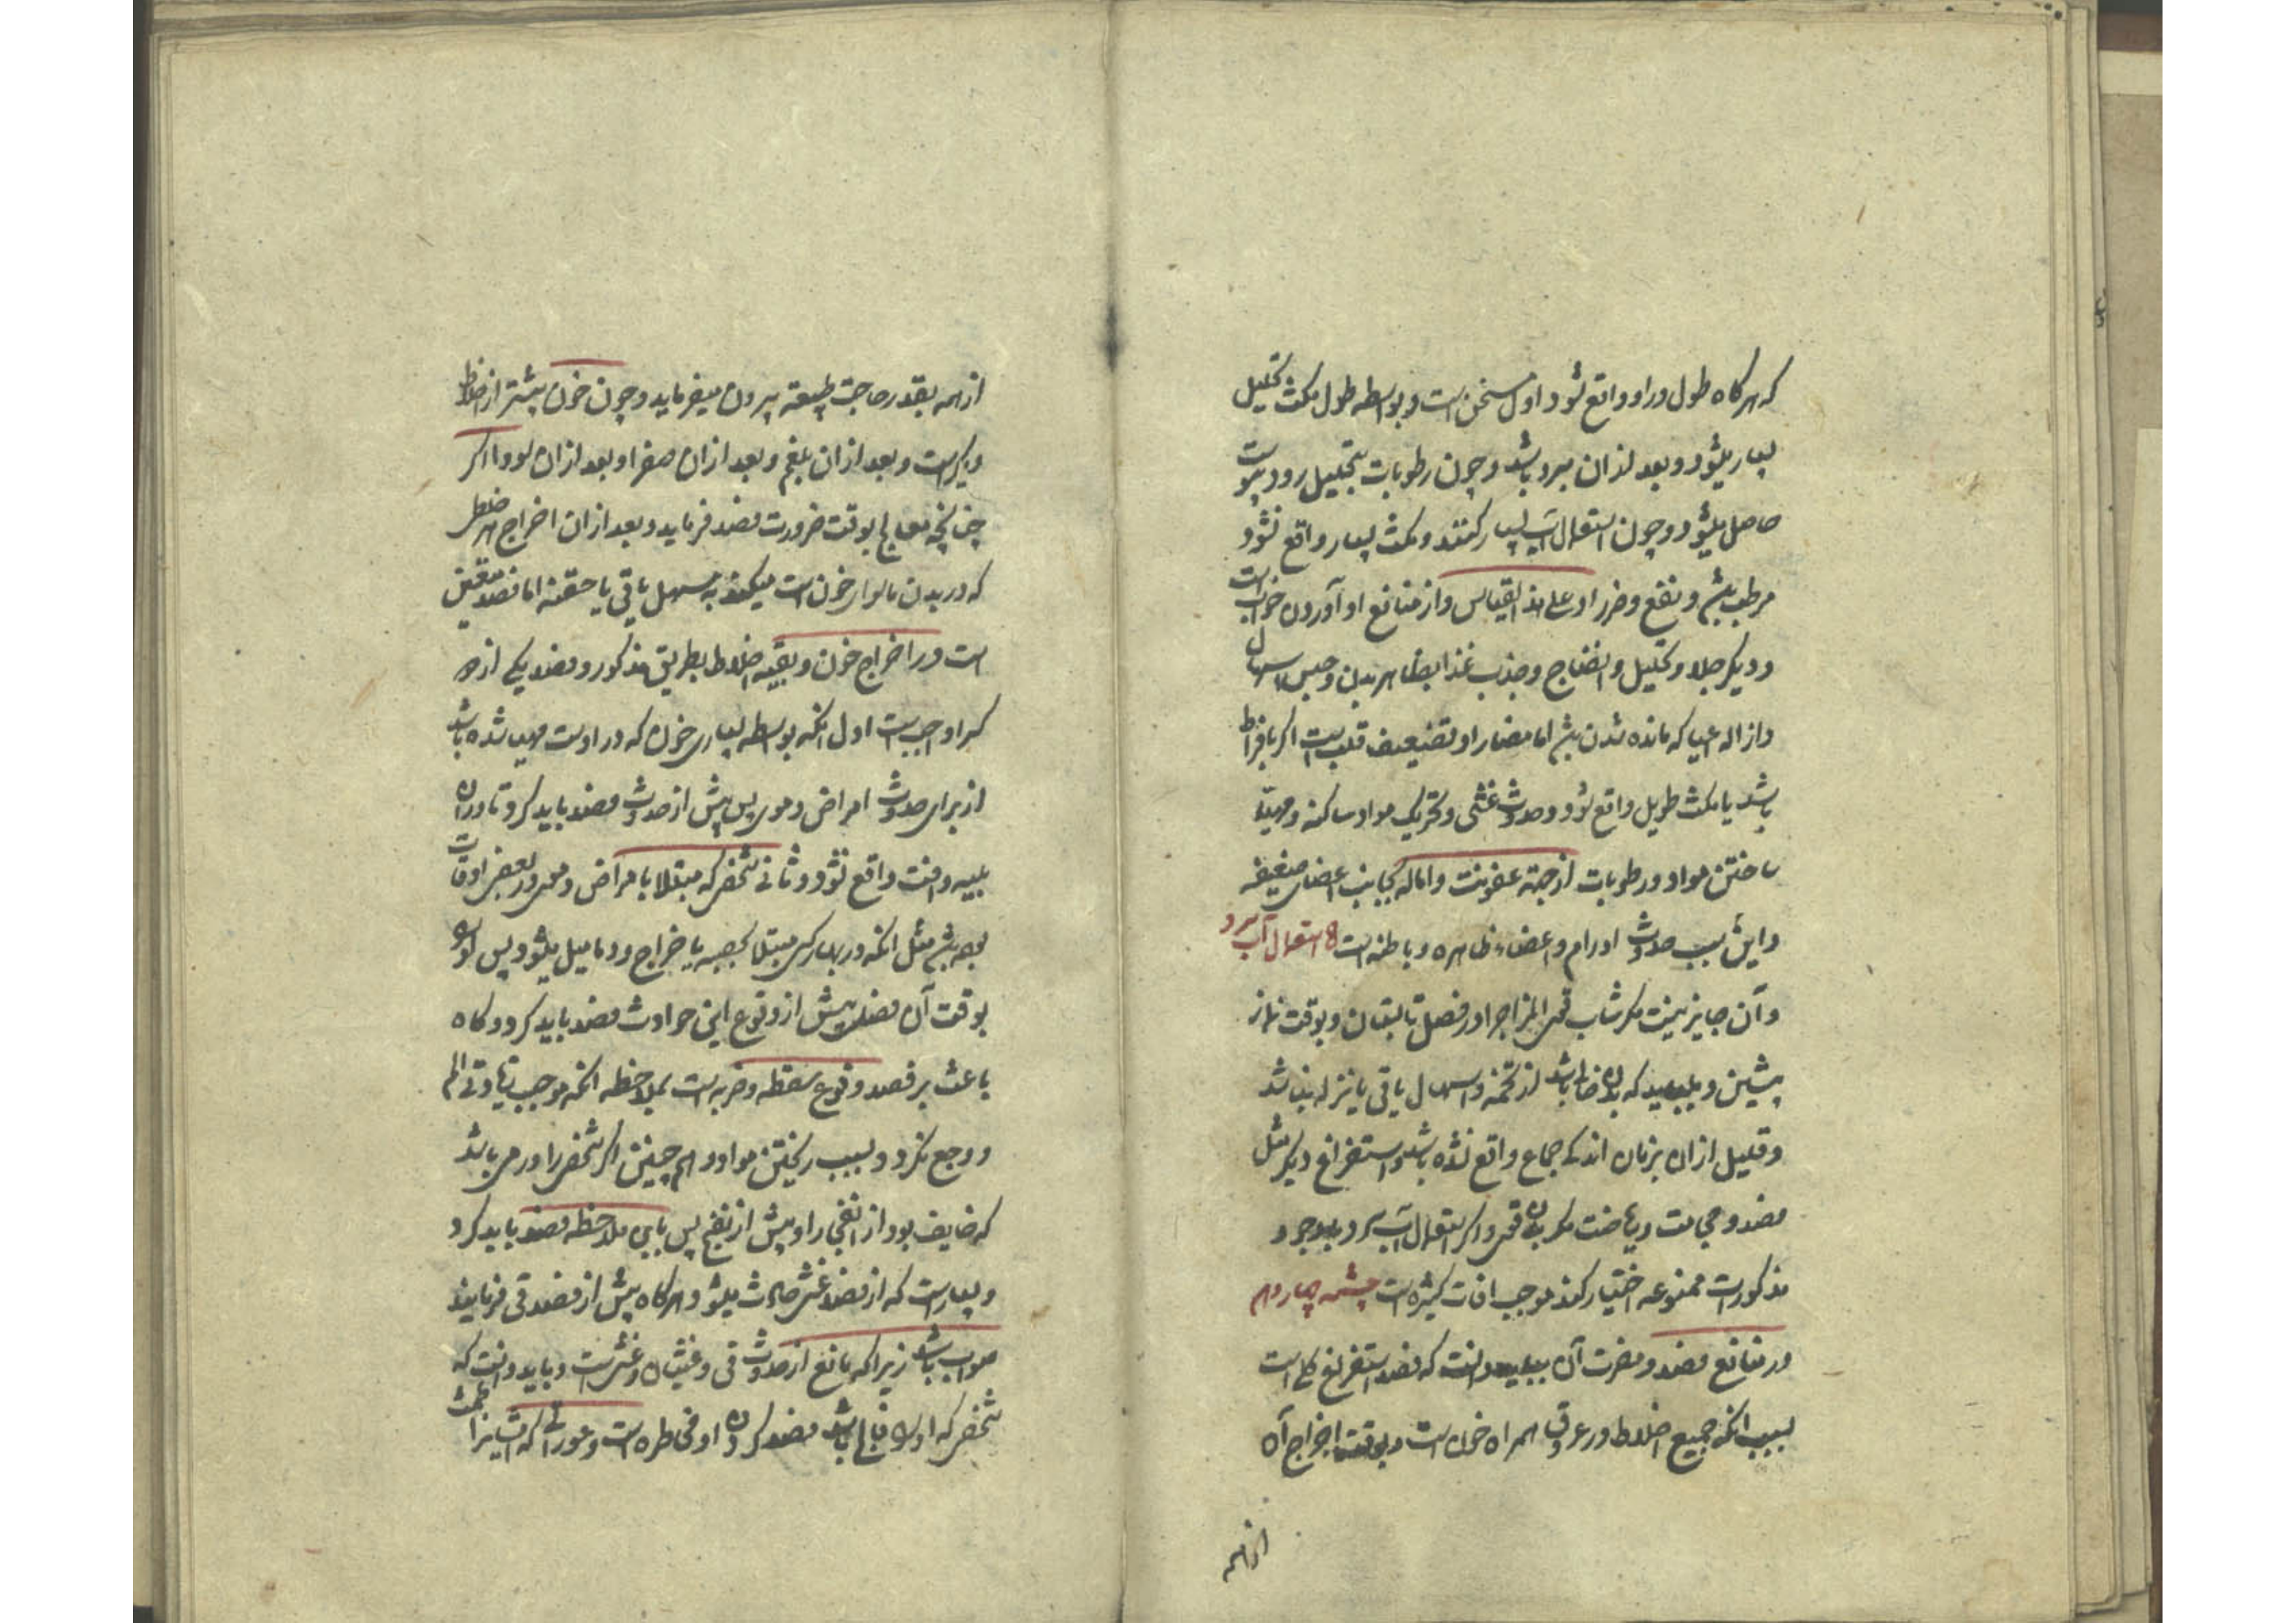 که هرگاه طول در او واقع شود اول مسخن است و بواسطه طول مکث تحلیل
بسیار میشود و بعد از ان مبرد باشد و چون رطوبات بتحلیل رود یبوست
حاصل میشود و چون استعمال آب بسیار کنند و مکث بسیار واقع نشود
مرطب بش و نفع و ضرر او علی هذا القیاس و از منافع او آوردن خواب است
و دیکر جلا و تحلیل و انضاج و جذب غذا بظاهر بدن و حبس اسهال
و ازاله اعیا که مانده شدن بش اما مضار او تضعیف قلب است اکر بافراط
باشد یا مکث طویل واقع شود و حدوث غشی و تحریک مواد ساکنه و مهیا
ساختن مواد و رطوبات از جهة عفونت و اماله بجانب اعضای ضعیفه
و این سبب حدوث اورام و اعضاء ظاهره و باطنه است استعمال آب سرد
و آن جایز نیست مکر شاب قوی المزاج را در فصل تابستان و بوقت نماز
پیشین و بباید که بدن خالی باشد از تخمه و اسهال یا قی یا نزله نباشد
و قلیل از ان بزمان اندکے جماع واقع نشده باشد و استفراغ دیکر مثل
فصد و حجامت و ریاضت مکر بدن قوی و اکر استعمال آب سرد باوجود
مذکورات ممنوعه اختیار کند موجب افات کثیره است چشمه چهاردهم
در منافع فصد و مضرت آن بباید دانست که فصد استفراغ کلی است
بسبب انکه جمیع اخلاط در عروق همراه خون است و بوقت اخراج آن
از همه
از همه بقدر حاجت طبیعة بیرون میفرماید و چون خون بیشتر از اخلاط
دیکر است و بعد از ان بلغم و بعد ازان صفرا و بعد ازان سودا اکر
چنانچه معالج بوقت ضرورت فصد فرماید و بعد ازان اخراج هر خلط
که در بدن ماسوای خون است میکند به مسهل یا قی یا حقنه اما فصد متعین
است در اخراج خون و بقیه اخلاط بطریق مذکور و فصد یکے از دو
کس را واجب است اول انکه بواسطه بسیاری خون که در اوست مهیا شده باشد
از برای حدوث امراض دموی پس پیش از حدوث فصد باید کرد تا در ان
بلیه و افت واقع نشود و ثانی شخصی که مبتلا بامراض دموی در بعضی اوقات
بوده بش مثل انکه در بهار کسی مبتلا بحصبه یا خراج و دمامیل میشود پس او را
بوقت آن فصل و پیش از وقوع این حوادث فصد باید کرد و کاه
باعث بر فصد وقوع سقطه و ضربه است بملاحظه انکه موجب زیادتی الم
و وجع نکردد بسبب ریختن مواد و هم چنین اکر شخصی را ورمی باشد
که خایف بود از انفجار او پیش از نضج پس باین ملاحظه فصد باید کرد
و بسیار است که از فصد غشی حادث میشود هرکاه پیش از فصد قی فرمایند
صواب باشد زیراکه مانع از حدوث قی و غثیان و غشی است و باید دانست که
شخصی که او را فالج باشد فصد کردن او مخاطره است و عوراتی که ایشانرا طمث